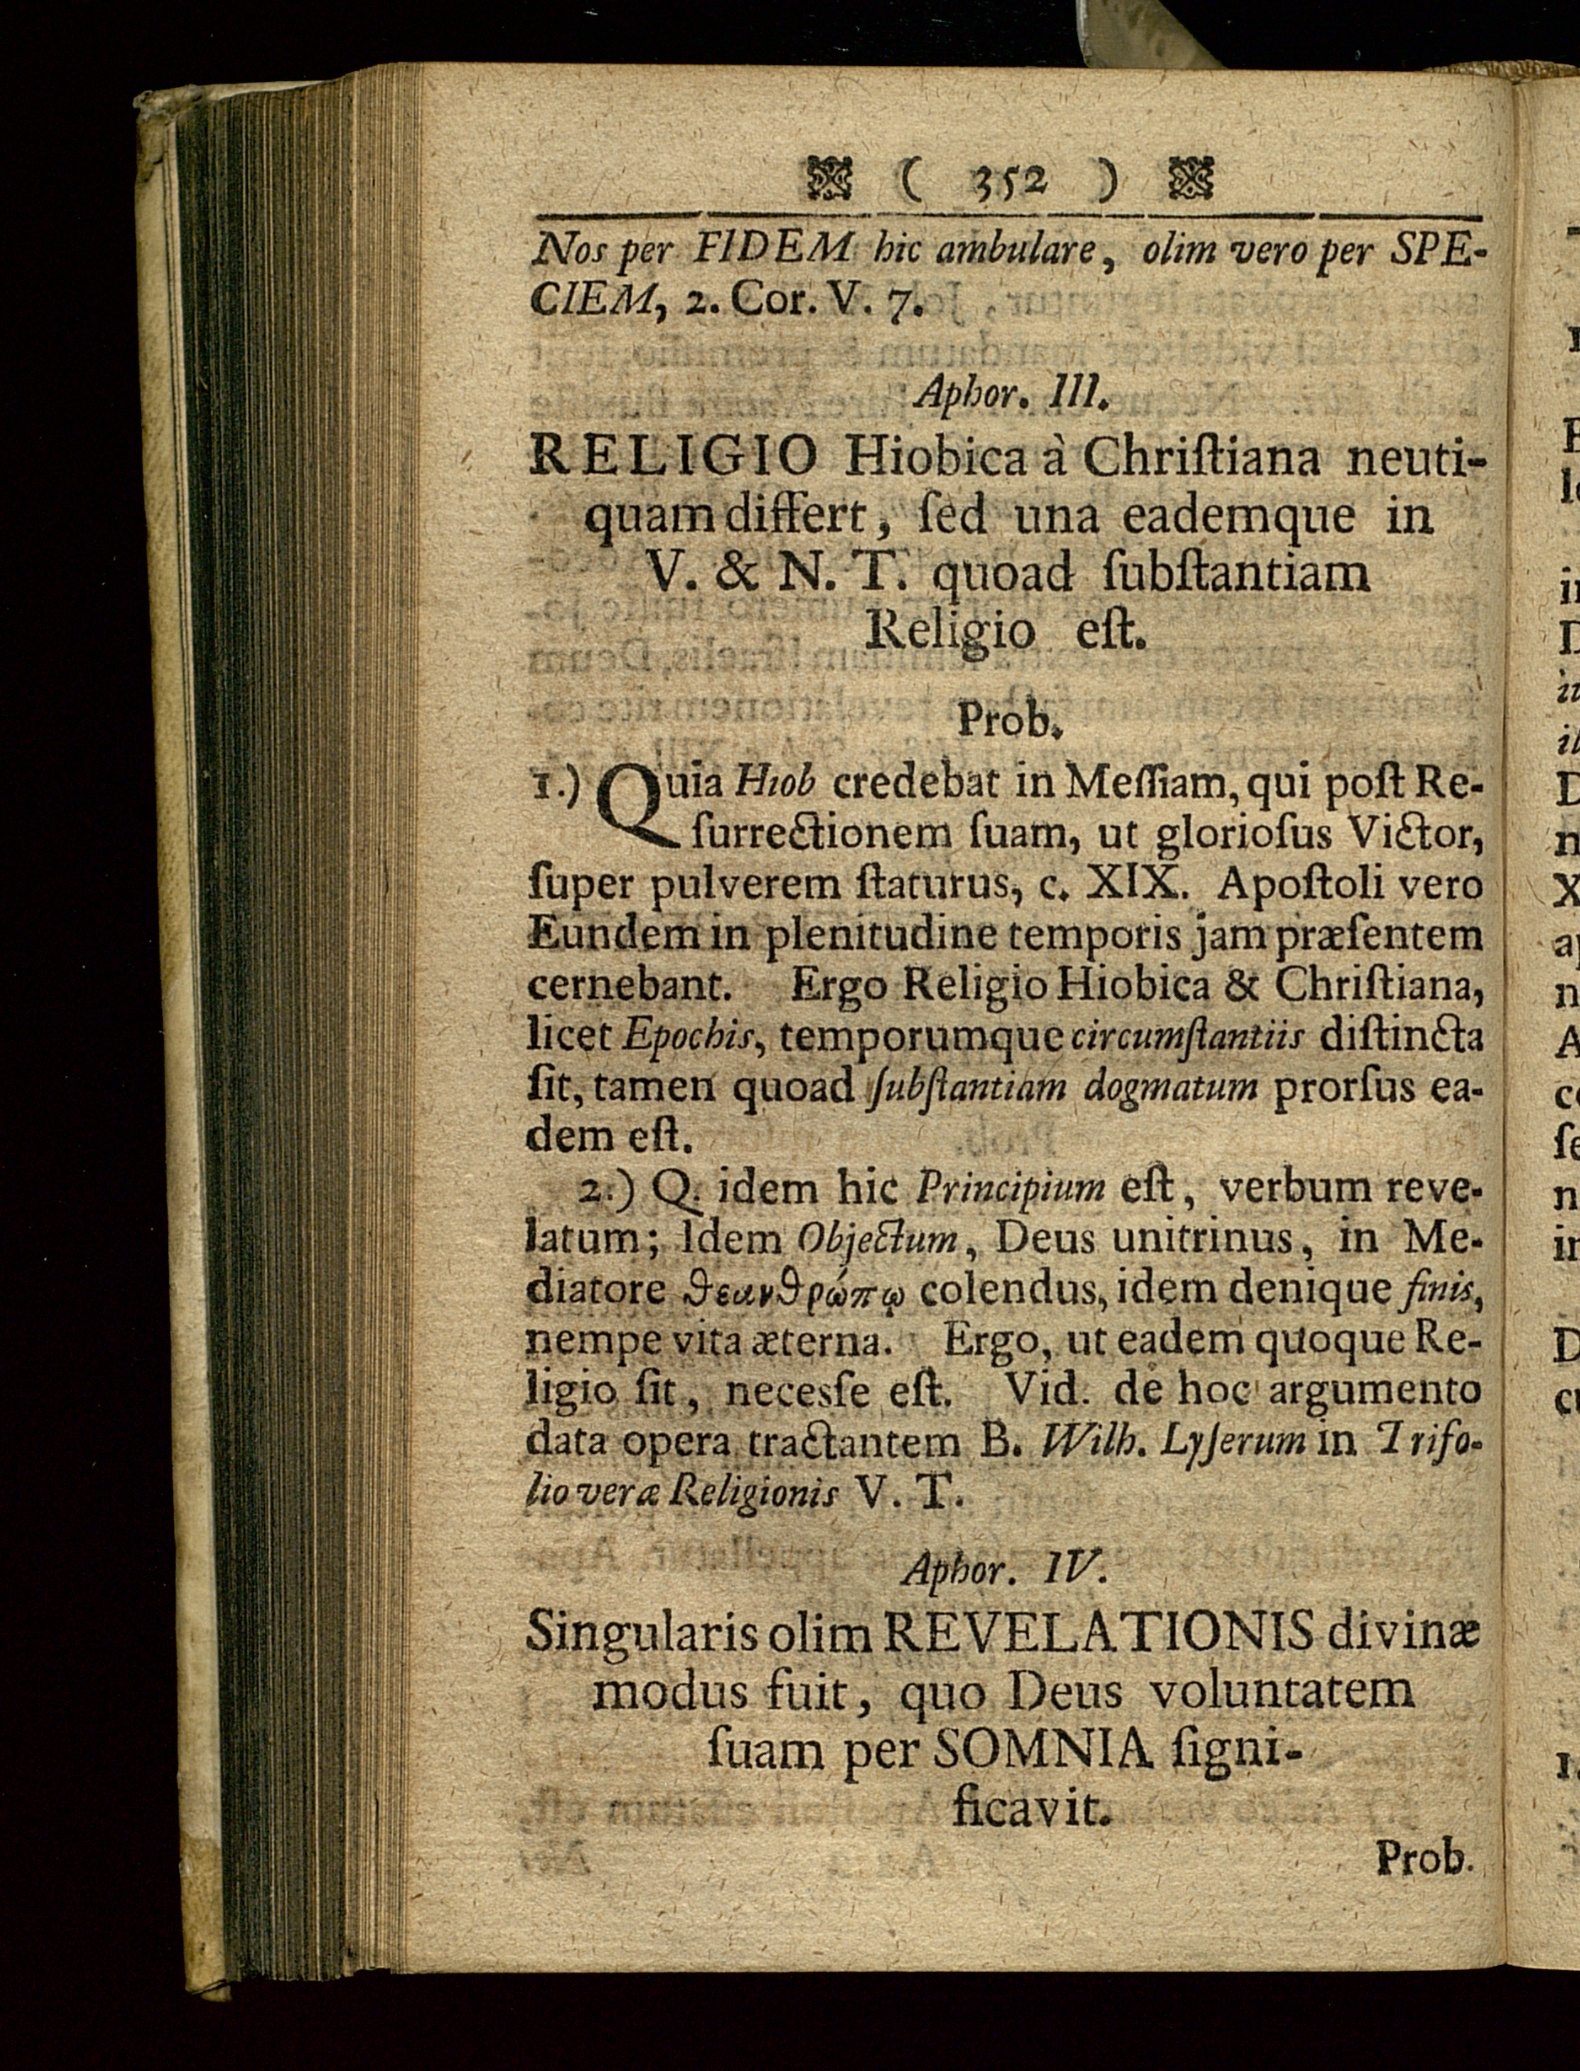 ( 352 )
Nos per FIDEM hic ambulare, olim vero per SPE-
CIEM, 2. Cor. V. 7.
Aphor. III.
RELIGIO Hiobica à Chriſtiana neuti-
quam differt, ſed una eademque in
V. & N. T. quoad ſubſtantiam
Religio eſt.
Prob.
1.) Quia Hiob credebat in Meſſiam, qui poſt Re-
ſurrectionem ſuam, ut glorioſus Victor,
ſuper pulverem ſtaturus, c. XIX. Apoſtoli vero
Eundem in plenitudine temporis jam præſentem
cernebant. Ergo Religio Hiobica & Chriſtiana,
licet Epochis, temporumque circumſtantiis diſtincta
ſit, tamen quoad ſubſtantiam dogmatum prorſus ea-
dem eſt.
2.) Q. idem hic Principium eſt, verbum reve-
latum; Idem Objectum, Deus unitrinus, in Me-
diatore ϑεανϑρώπῳ colendus, idem denique finis,
nempe vita æterna. Ergo, ut eadem quoque Re-
ligio ſit, neceſſe eſt. Vid. de hoc argumento
data opera tractantem B. Wilh. Lyſerum in Trifo-
lio veræ Religionis V. T.
Aphor. IV.
Singularis olim REVELATIONIS divinæ
modus fuit, quo Deus voluntatem
ſuam per SOMNIA ſigni-
ficavit.
Prob.